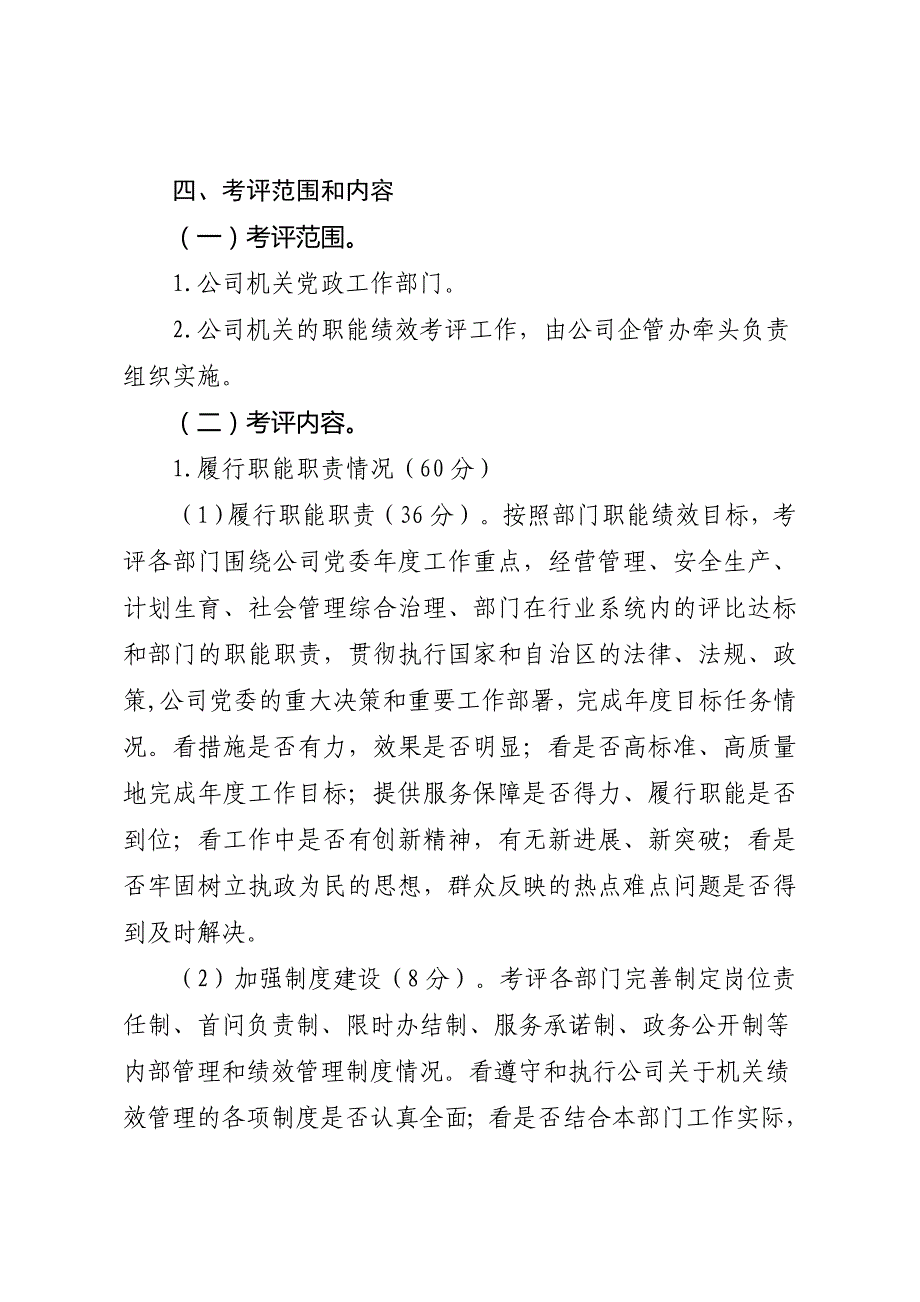 四、考评范围和内容
（一）考评范围。
1.公司机关党政工作部门。
2.公司机关的职能绩效考评工作，由公司企管办牵头负责
组织实施。
（二）考评内容。
1.履行职能职责情况（60分）
（1）履行职能职责（36分）。按照部门职能绩效目标，考
评各部门围绕公司党委年度工作重点，经营管理、安全生产、
计划生育、社会管理综合治理、部门在行业系统内的评比达标
和部门的职能职责，贯彻执行国家和自治区的法律、法规、政
策,公司党委的重大决策和重要工作部署，完成年度目标任务情
况。看措施是否有力，效果是否明显；看是否高标准、高质量
地完成年度工作目标；提供服务保障是否得力、履行职能是否
到位；看工作中是否有创新精神，有无新进展、新突破；看是
否牢固树立执政为民的思想，群众反映的热点难点问题是否得
到及时解决。
（2）加强制度建设（8分）。考评各部门完善制定岗位责
任制、首问负责制、限时办结制、服务承诺制、政务公开制等
内部管理和绩效管理制度情况。看遵守和执行公司关于机关绩
效管理的各项制度是否认真全面；看是否结合本部门工作实际，